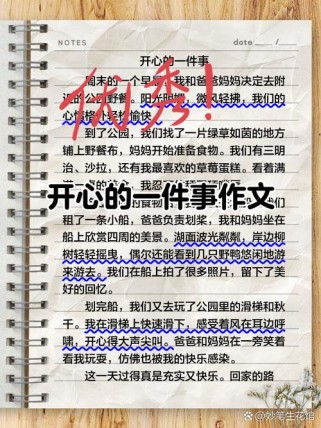 NOTES
date
开心的一件事
周末的一个早晨，我和爸爸妈妈决定去附
近的公园野餐。阳光明媚，微风轻拂，我们的
心情格外轻松愉快。
优秀！
到了公园，我们找了一片绿草如茵的地方
铺上野餐布，妈妈开始准备食物。我们有三明
治、沙拉，还有我最喜欢的草莓蛋糕。看着满
开心的一件事作文
的食物
我们
租了一条小船，爸爸负责划桨，我和妈妈坐在
船上欣赏四周的美景。湖面波光粼粼，岸边柳
树轻轻摇曳，偶尔还能看到几只野鸭悠闲地游
来游去。我们在船上拍了很多照片，留下了美
好的回忆。
划完船，我们又去玩了公园里的滑梯和秋
千。我在滑梯上快速滑下，感受着风在耳边呼
啸，开心得大声尖叫。爸爸和妈妈在一旁笑着
看我玩耍，仿佛也被我的快乐感染。
这一天过得真是充实又快乐。回家的路
@妙笔生花馆